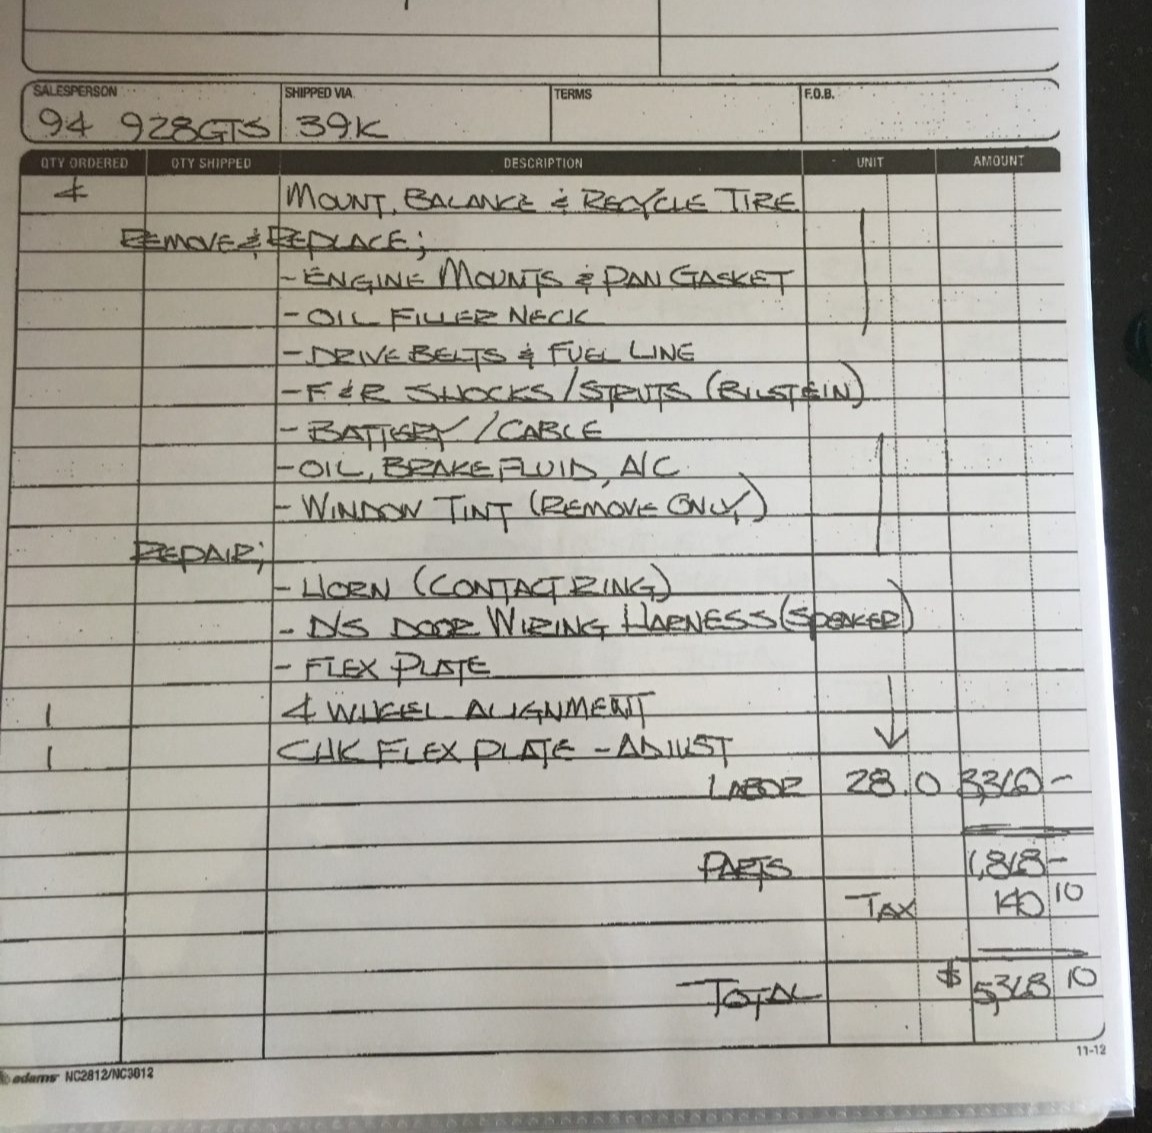 SALESPERSON SHIPPED VIA TERMS F.O.B.
94 928GTS 39K
QTY ORDERED QTY SHIPPED DESCRIPTION UNIT AMOUNT
4 MOUNT, BALANCE & RECYCLE TIRE
REMOVE & REPLACE;
- ENGINE MOUNTS & PAN GASKET
- OIL FILLER NECK
- DRIVE BELTS & FUEL LINE
- F & R SHOCKS / STRUTS (BILSTEIN)
- BATTERY / CABLE
- OIL, BRAKE FLUID, A/C
- WINDOW TINT (REMOVE ONLY)
REPAIR;
- HORN (CONTACT RING)
- D/S DOOR WIRING HARNESS (SPEAKER)
- FLEX PLATE
1 4 WHEEL ALIGNMENT
1 CHK FLEX PLATE - ADJUST
LABOR 28.0 3,360 -
PARTS 1,868 -
TAX 140 10
TOTAL $ 5,368 10
11-12
adams NC2812/NC3812